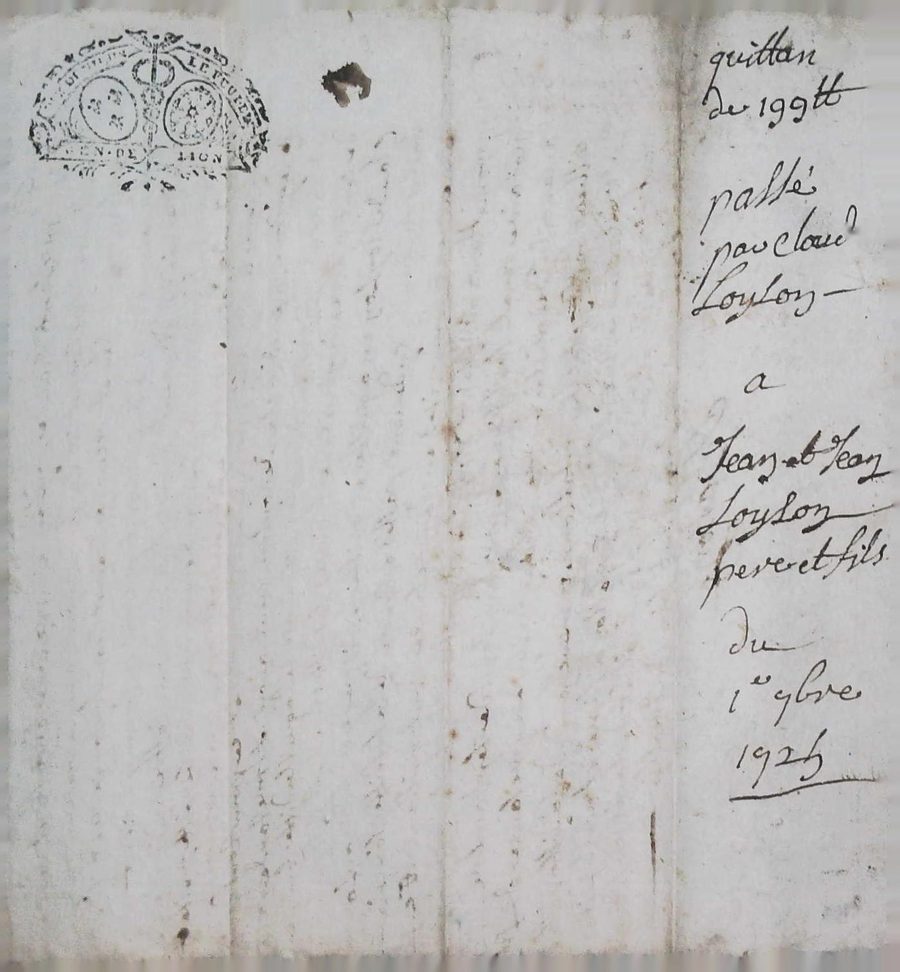 EN·DE LION
quittan
de 177tt
passé
par Claud
Loyson
a
Jean et Jean
Loyson
pere et fils
du
1er 7bre
1725